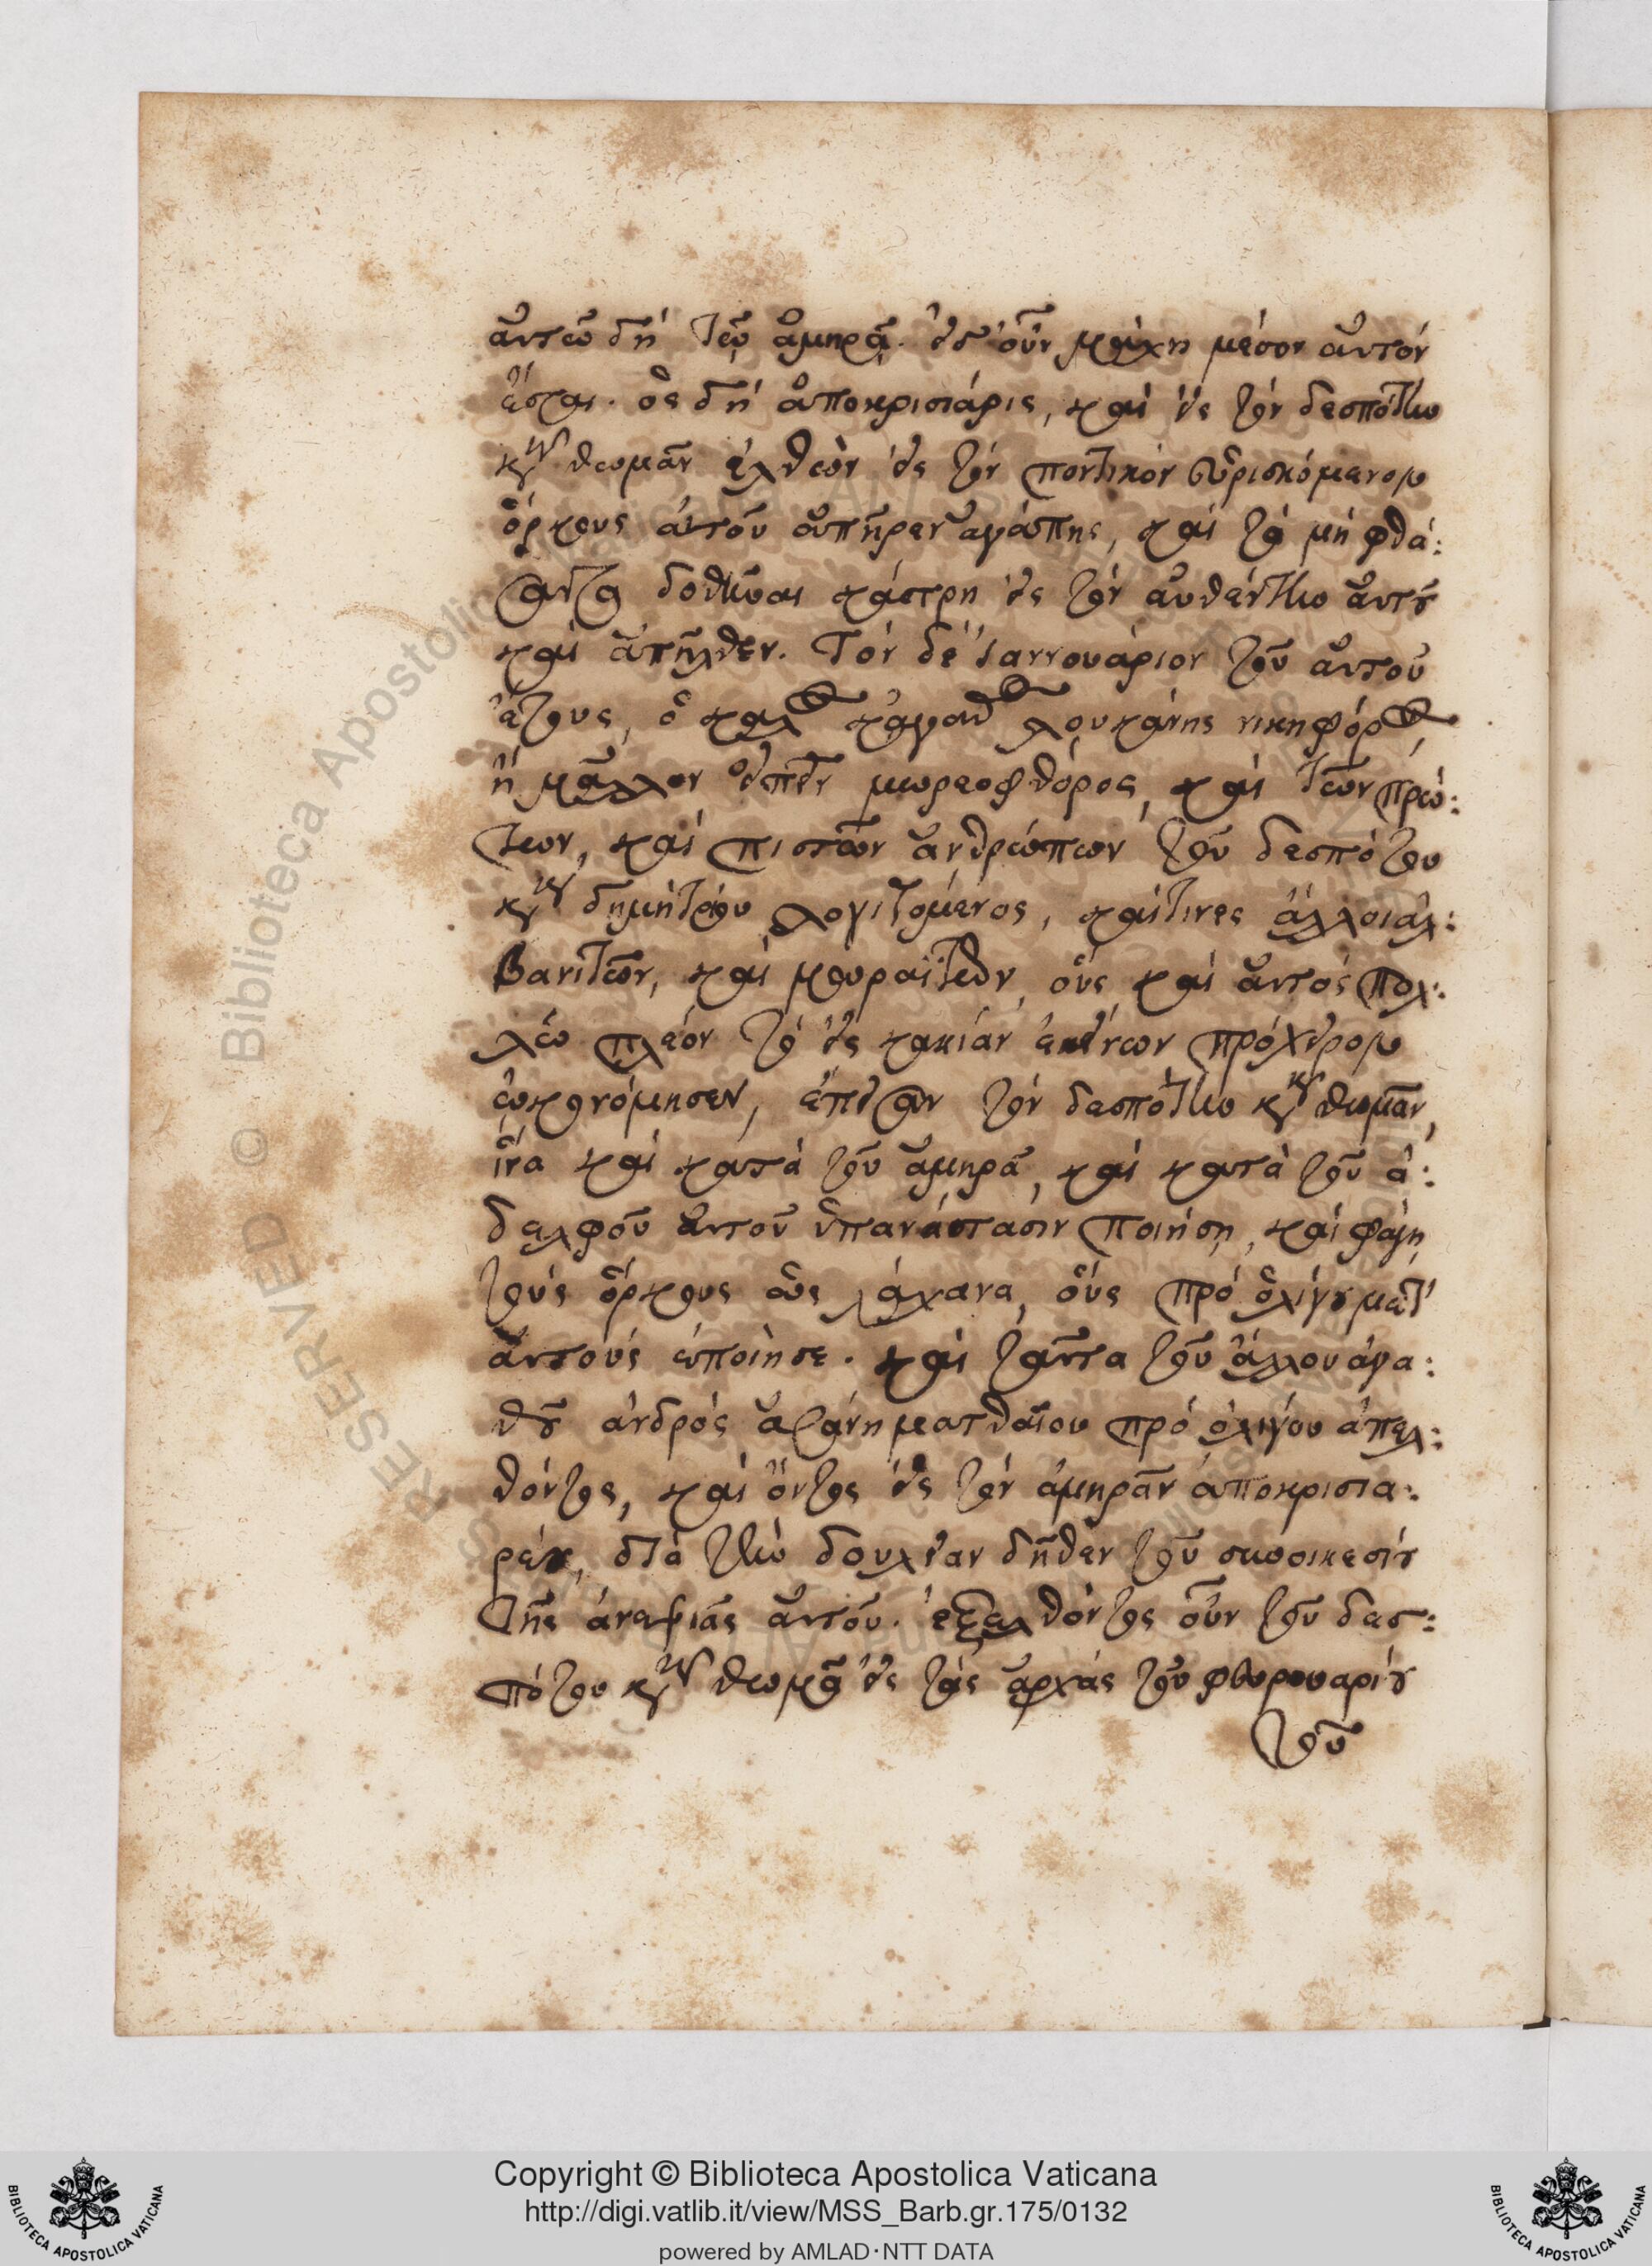 αὐτῶ δὴ τῶ ἀμηρᾶ. εἰ δ' οὖν μάχη μέσον αὐτὸν
ἔσται. ὃς δὴ ἀποκρισιάρις, καὶ εἰς τὸν δεσπότην
κὺρ θωμᾶν ἐλθὼν εἰς τὸν ποντικὸν εὑρισκόμενον
ὅρκους αὐτοῦ ἀπῆρεν ἀγάπης, καὶ τὰ μὴ φθά:
σαντα δοθῆναι κάστρη εἰς τὸν αὐθέντην αὐτοῦ
καὶ ἀπῆλθεν. Τὸν δὲ ἰαννουάριον τοῦ αὐτοῦ
ἔτους, ὁ λουκάνης νικηφόρος
ἢ μᾶλλον εἰπεῖν μωρεοφθόρος, καὶ τῶν πρώ:
των, καὶ πιστῶν ἀνθρώπων τοῦ δεσπότου
κὺρ δημητρίου λογιζομένος, καί τινες ἄλλοι ἀλ:
βανιτῶν, καὶ μουραϊτῶν, οὓς καὶ αὐτὸς πολ:
λῶ πλέον τὸ εἰς κακίαν ἐκείνων πρόχειρον
ὠκονόμησεν, ἔπεισαν τὸν δεσπότην κὺρ θωμᾶν,
ἵνα καὶ κατὰ τοῦ ἀμηρᾶ, καὶ κατὰ τοῦ ἀ:
δελφοῦ αὐτοῦ ὑπανάστασιν ποιήση, καὶ φάγη
τοὺς ὅρκους ὡς λάχανα, οὓς πρὸ ὀλίγου μετ'
αὐτοὺς ἐποίησε. καὶ ταῦτα τοῦ ἄλλου ἀγα:
θοῦ ἀνδρὸς ἀσάνη ματθαίου πρὸ ὀλίγου ἀπελ:
θόντος, καὶ ὄντος εἰς τὸν ἀμηρᾶν ἀποκρισια:
ρέου, διὰ τὴν δουλείαν δῆθεν τοῦ συνοικεσίου
τῆς ἀνεψιᾶς αὐτοῦ. ἐξελθόντος οὖν τοῦ δεσ:
πότου κὺρ θωμᾶ εἰς τὰς ἀρχὰς τοῦ φευρουαρίου
τοῦ
Copyright © Biblioteca Apostolica Vaticana
http://digi.vatlib.it/view/MSS_Barb.gr.175/0132
powered by AMLAD·NTT DATA
BIBLIOTECA APOSTOLICA VATICANA
BIBLIOTECA APOSTOLICA VATICANA